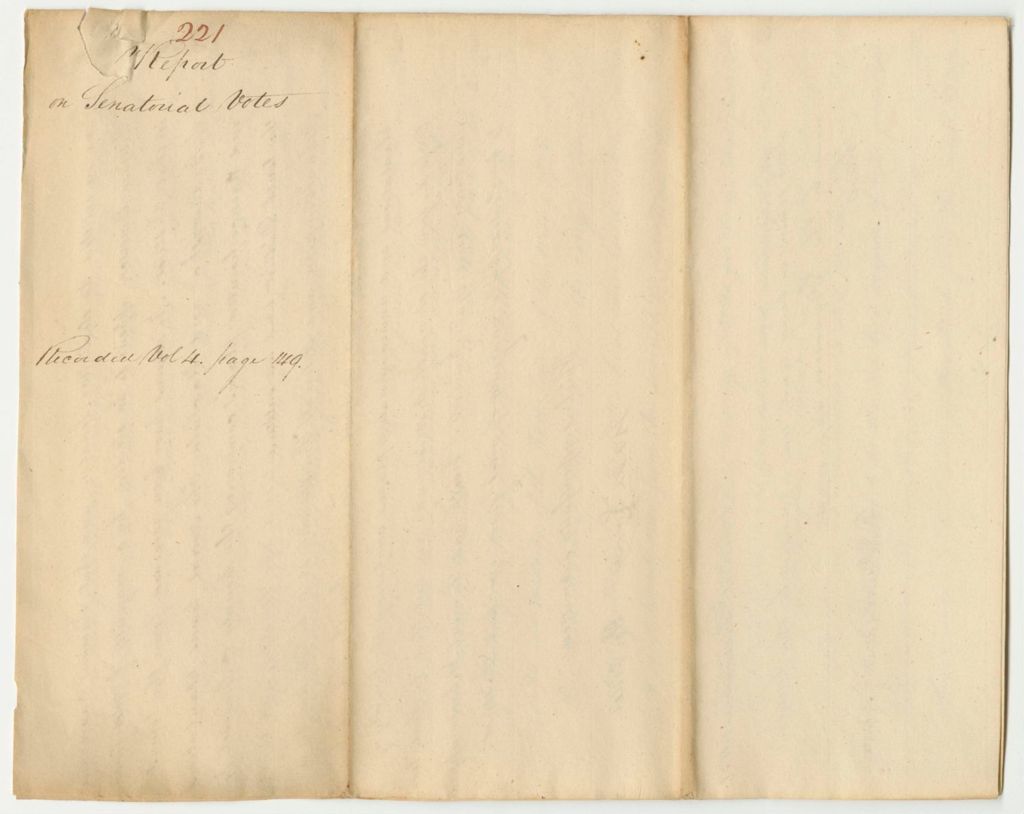 221
Report
on Senatorial Votes
Recorded Vol 4. page 149.